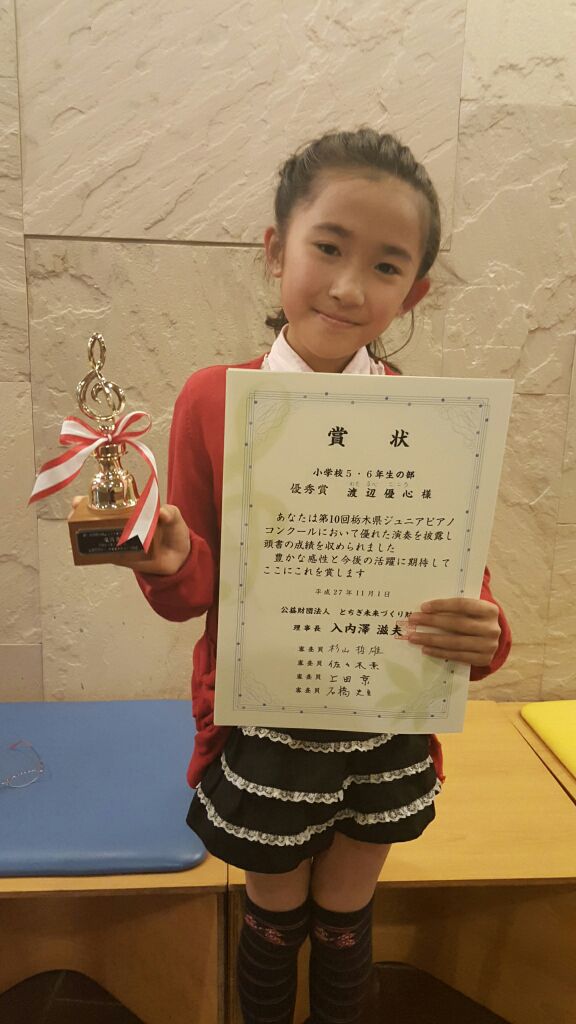 賞状
小学校5・6年生の部
優秀賞 渡辺優心様
あなたは第10回栃木県ジュニアピアノ
コンクールにおいて優れた演奏を披露し
頭書の成績を収められました
豊かな感性と今後の活躍に期待して
ここにこれを賞します
平成27年11月1日
公益財団法人 とちぎ未来づくり財
理事長 入内澤滋夫
審査員 杉山哲雄
審査員 佐々木素
審査員 上田京
審査員 石橋史生